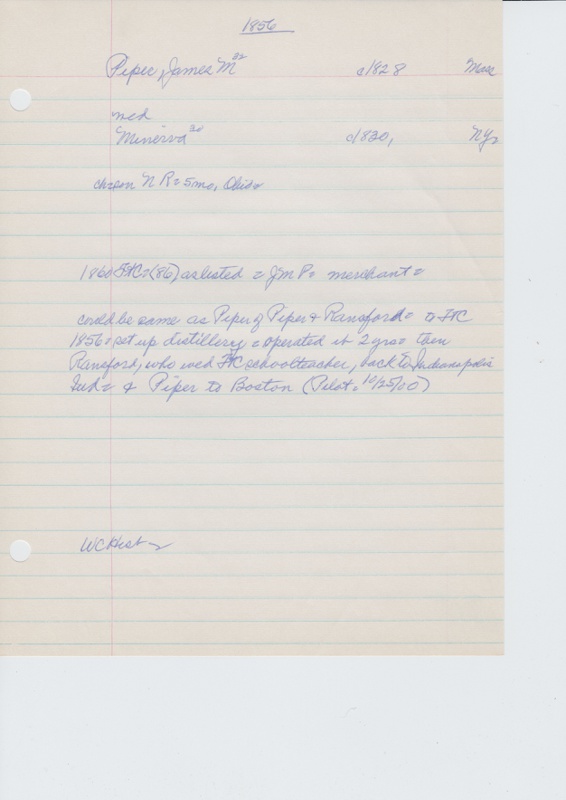 1856
Piper, James M 32 c/1828 Mass
wed
Minerva 30 c/1830, NY
chson N R = 5mo, Ohio
1860 FtC = (86) as listed = J M P = merchant =
could be same as Piper of Piper & Ransford = to FtC
1856 = set up distillery = operated it 2 yrs = then
Ransford, who wed FtC schoolteacher, back to Indianapolis
Ind = & Piper to Boston (Pilot = 10/25/00)
WCHist